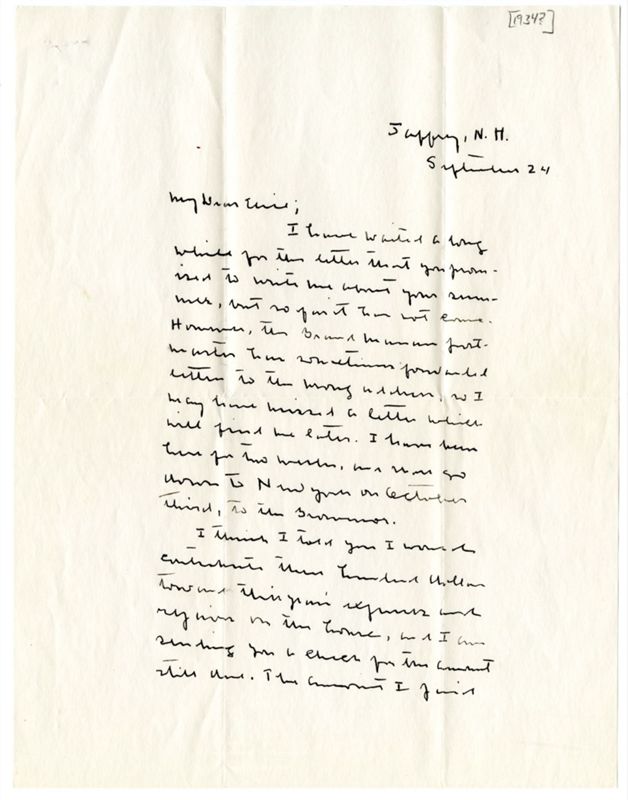 [1934?]
Jaffrey, N. H.
September 24
My Dear Elsie;
I have waited a long
while for the letter that you prom-
ised to write me about your sum-
mer, but so far it has not come.
However, the Grand Manan post-
master has sometimes forwarded
letters to the wrong address, so I
may have missed a letter which
will find me later. I have been
here for two weeks, and shall go
down to New York on October
third, to the Grosvenor.
I think I told you I would
contribute three hundred dollars
toward this year's expenses and
repairs on the house, and I am
sending you a check for the amount
still due. The amount I paid